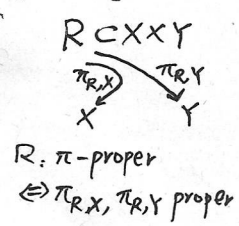 R ⊂ X × Y
π_{R,X} π_{R,Y}
X Y
R: π-proper
⇔ π_{R,X}, π_{R,Y} proper